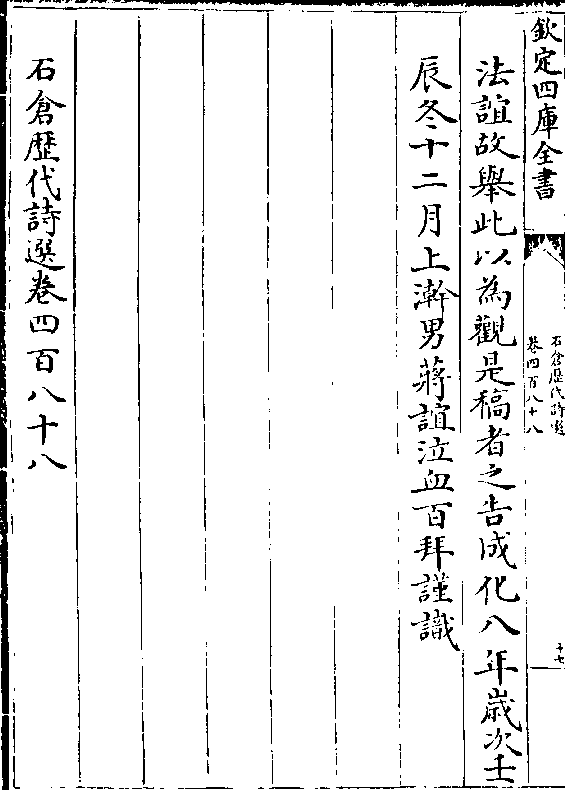 欽定四庫全書
石倉歴代詩選
卷四百八十八
十七
法誼故舉此以為觀是稿者之告成化八年歲次壬
辰冬十二月上澣男蔣誼泣血百拜謹識
石倉歴代詩選卷四百八十八